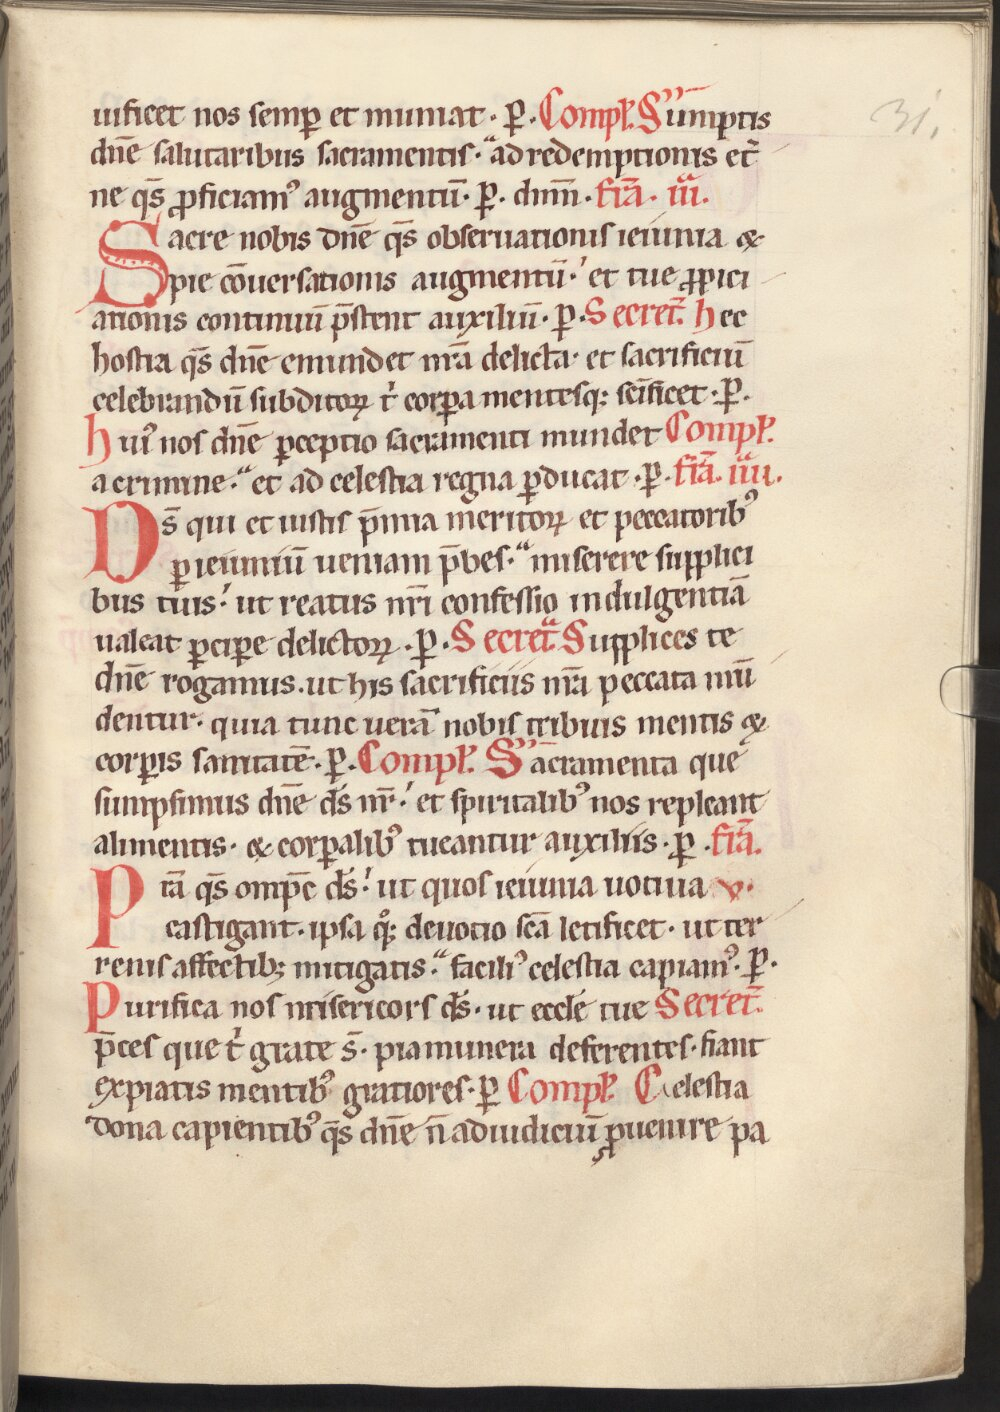 uificet nos semꝑ et muniat · ꝑ · Compl̄. Sumptis
31.
dn̄e salutaribus sacramentis · ad redemptionis et̄
ne qs̄ ꝓficiam᷒ augmentū · ꝑ · dnm̄ · fr̄ia · iii.
Sacre nobis dn̄e qs̄ obseruationis ieiunia &
pie cōuersationis augmentū · et tue ꝓpici
ationis continuū p̄stent auxiliū · ꝑ · Secret̄. hec
hostia qs̄ dn̄e emundet nr̄a delicta · et sacrificiū
celebrandū subditoꝝ t᷑ corꝑa mentesq; sc̄ificet · ꝑ ·
hui᷒ nos dn̄e ꝑceptio sacramenti mundet Compl̄.
a crimine · et ad celestia regna ꝑducat · ꝑ · fr̄ia · iiii.
Ds̄ qui et iustis p̄mia meritoꝝ et peccatorib᷒
ꝑ ieiuniū ueniam p̄bes · miserere supplici
bus tuis · ut reatus nr̄i confessio indulgentiā
ualeat ꝑciꝑe delictoꝝ · ꝑ · Secret̄a Supplices te
dn̄e rogamus · ut his sacrificiis nr̄a peccata mū
dentur · quia tunc uerā nobis tribuis mentis &
corꝑis sanitatē · ꝑ · Compl̄. Sacramenta que
sumpsimus dn̄e ds̄ nr̄ · et spiritalib᷒ nos repleant
alimentis · & corꝑalib᷒ tueantur auxiliis · ꝑ · fr̄ia.
Pr̄a qs̄ omp̄c ds̄ · ut quos ieiunia uotiua v ·
castigant · ipsa qͦ; deuotio sc̄a letificet · ut ter
renis affectib; mitigatis · facili᷒ celestia capiam᷒ · ꝑ ·
Purifica nos misericors ds̄ · ut eccl̄e tue Secret̄.
p̄ces que t᷑ grate s̄ · pia munera deferentes · fiant
expiatis mentib᷒ gratiores · ꝑ Compl̄. Celestia
dona capientib᷒ qs̄ dn̄e n̄ ad iudiciū ꝓuenire pa